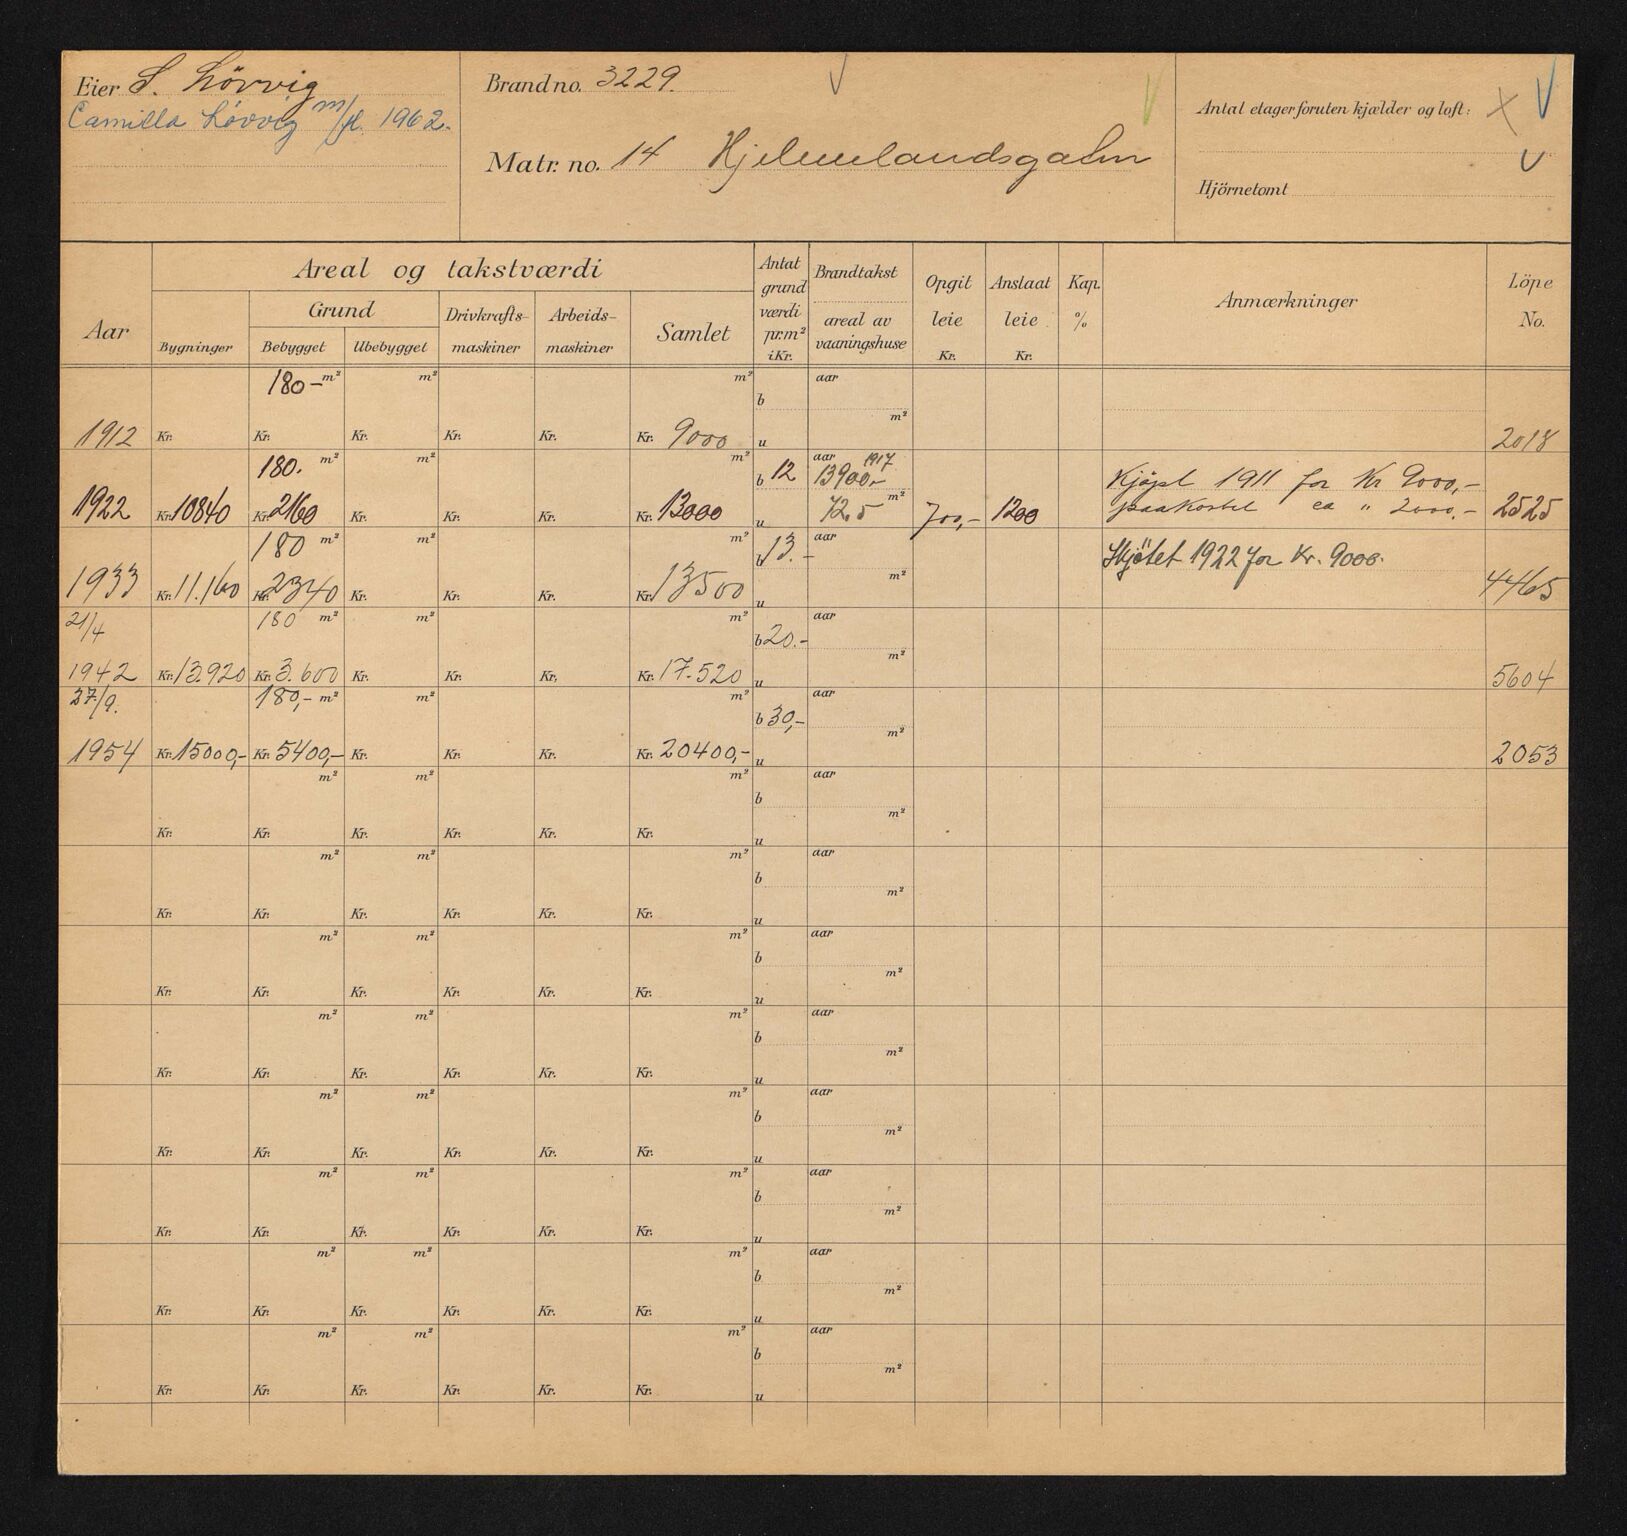 Eier S. Lövvig
Camilla Lövvig m/fl. 1962.
Brand no. 3229.
Matr. no. 14 Hjelmelandsgaten
Antal etager foruten kjælder og loft:
Hjörnetomt
Aar
Areal og takstværdi
Bygninger
Grund
Bebygget Ubebygget
Drivkrafts-
maskiner
Arbeids-
maskiner
Samlet
Antat
grund
værdi
pr. m²
i Kr.
Brandtakst
areal av
vaaningshuse
Opgit
leie
Kr.
Anslaat
leie
Kr.
Kap.
%
Anmærkninger
Löpe
No.
180- m² m² m² b aar
m²
1912 Kr. Kr. Kr. Kr. Kr. Kr. 9000 u 2018
180. m² m² m² b 12 aar 1917
13900,-
m²
1922 Kr. 10840 Kr. 2160 Kr. Kr. Kr. Kr. 13000 u 72.5 700,- 1200 2525
Kjöpt 1911 for Kr 9000,-
paakostet ca " 2000,-
180 m² m² m² b 13.- aar
m²
1933 Kr. 11.160 Kr. 2340 Kr. Kr. Kr. Kr. 13500 u 4465
Skjötet 1922 for Kr. 9000.
21/4 180 m² m² m² b 20.- aar
m²
1942 Kr. 13.920 Kr. 3.600 Kr. Kr. Kr. Kr. 17.520 u 5604
27/9. 180,- m² m² m² b 30,- aar
m²
1954 Kr. 15000,- Kr. 5400,- Kr. Kr. Kr. Kr. 20400,- u 2053
m² m² m² b aar
m²
Kr. Kr. Kr. Kr. Kr. Kr. u
m² m² m² b aar
m²
Kr. Kr. Kr. Kr. Kr. Kr. u
m² m² m² b aar
m²
Kr. Kr. Kr. Kr. Kr. Kr. u
m² m² m² b aar
m²
Kr. Kr. Kr. Kr. Kr. Kr. u
m² m² m² b aar
m²
Kr. Kr. Kr. Kr. Kr. Kr. u
m² m² m² b aar
m²
Kr. Kr. Kr. Kr. Kr. Kr. u
m² m² m² b aar
m²
Kr. Kr. Kr. Kr. Kr. Kr. u
m² m² m² b aar
m²
Kr. Kr. Kr. Kr. Kr. Kr. u